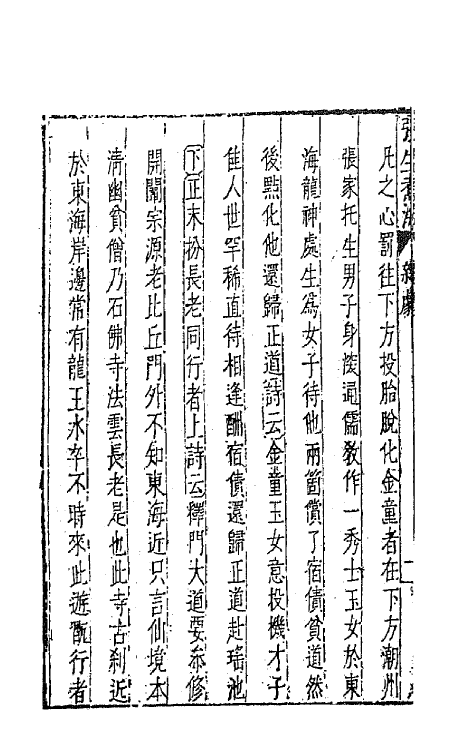 張生煮海　雜劇
凡之心罰往下方投胎脫化金童者在下方潮州
張家托生男子身深通儒教作一秀士玉女於東
海龍神處生爲女子待他兩箇償了宿債貧道然
後點化他還歸正道詩云金童玉女意投機才子
佳人世罕稀直待相逢酬宿債還歸正道赴瑶池
下正末扮長老同行者上詩云釋門大道要叅修
開闡宗源老比丘門外不知東海近只言仙境本
清幽貧僧乃石佛寺法雲長老是也此寺古刹近
於東海岸邊常有龍王水卒不時來此遊翫行者